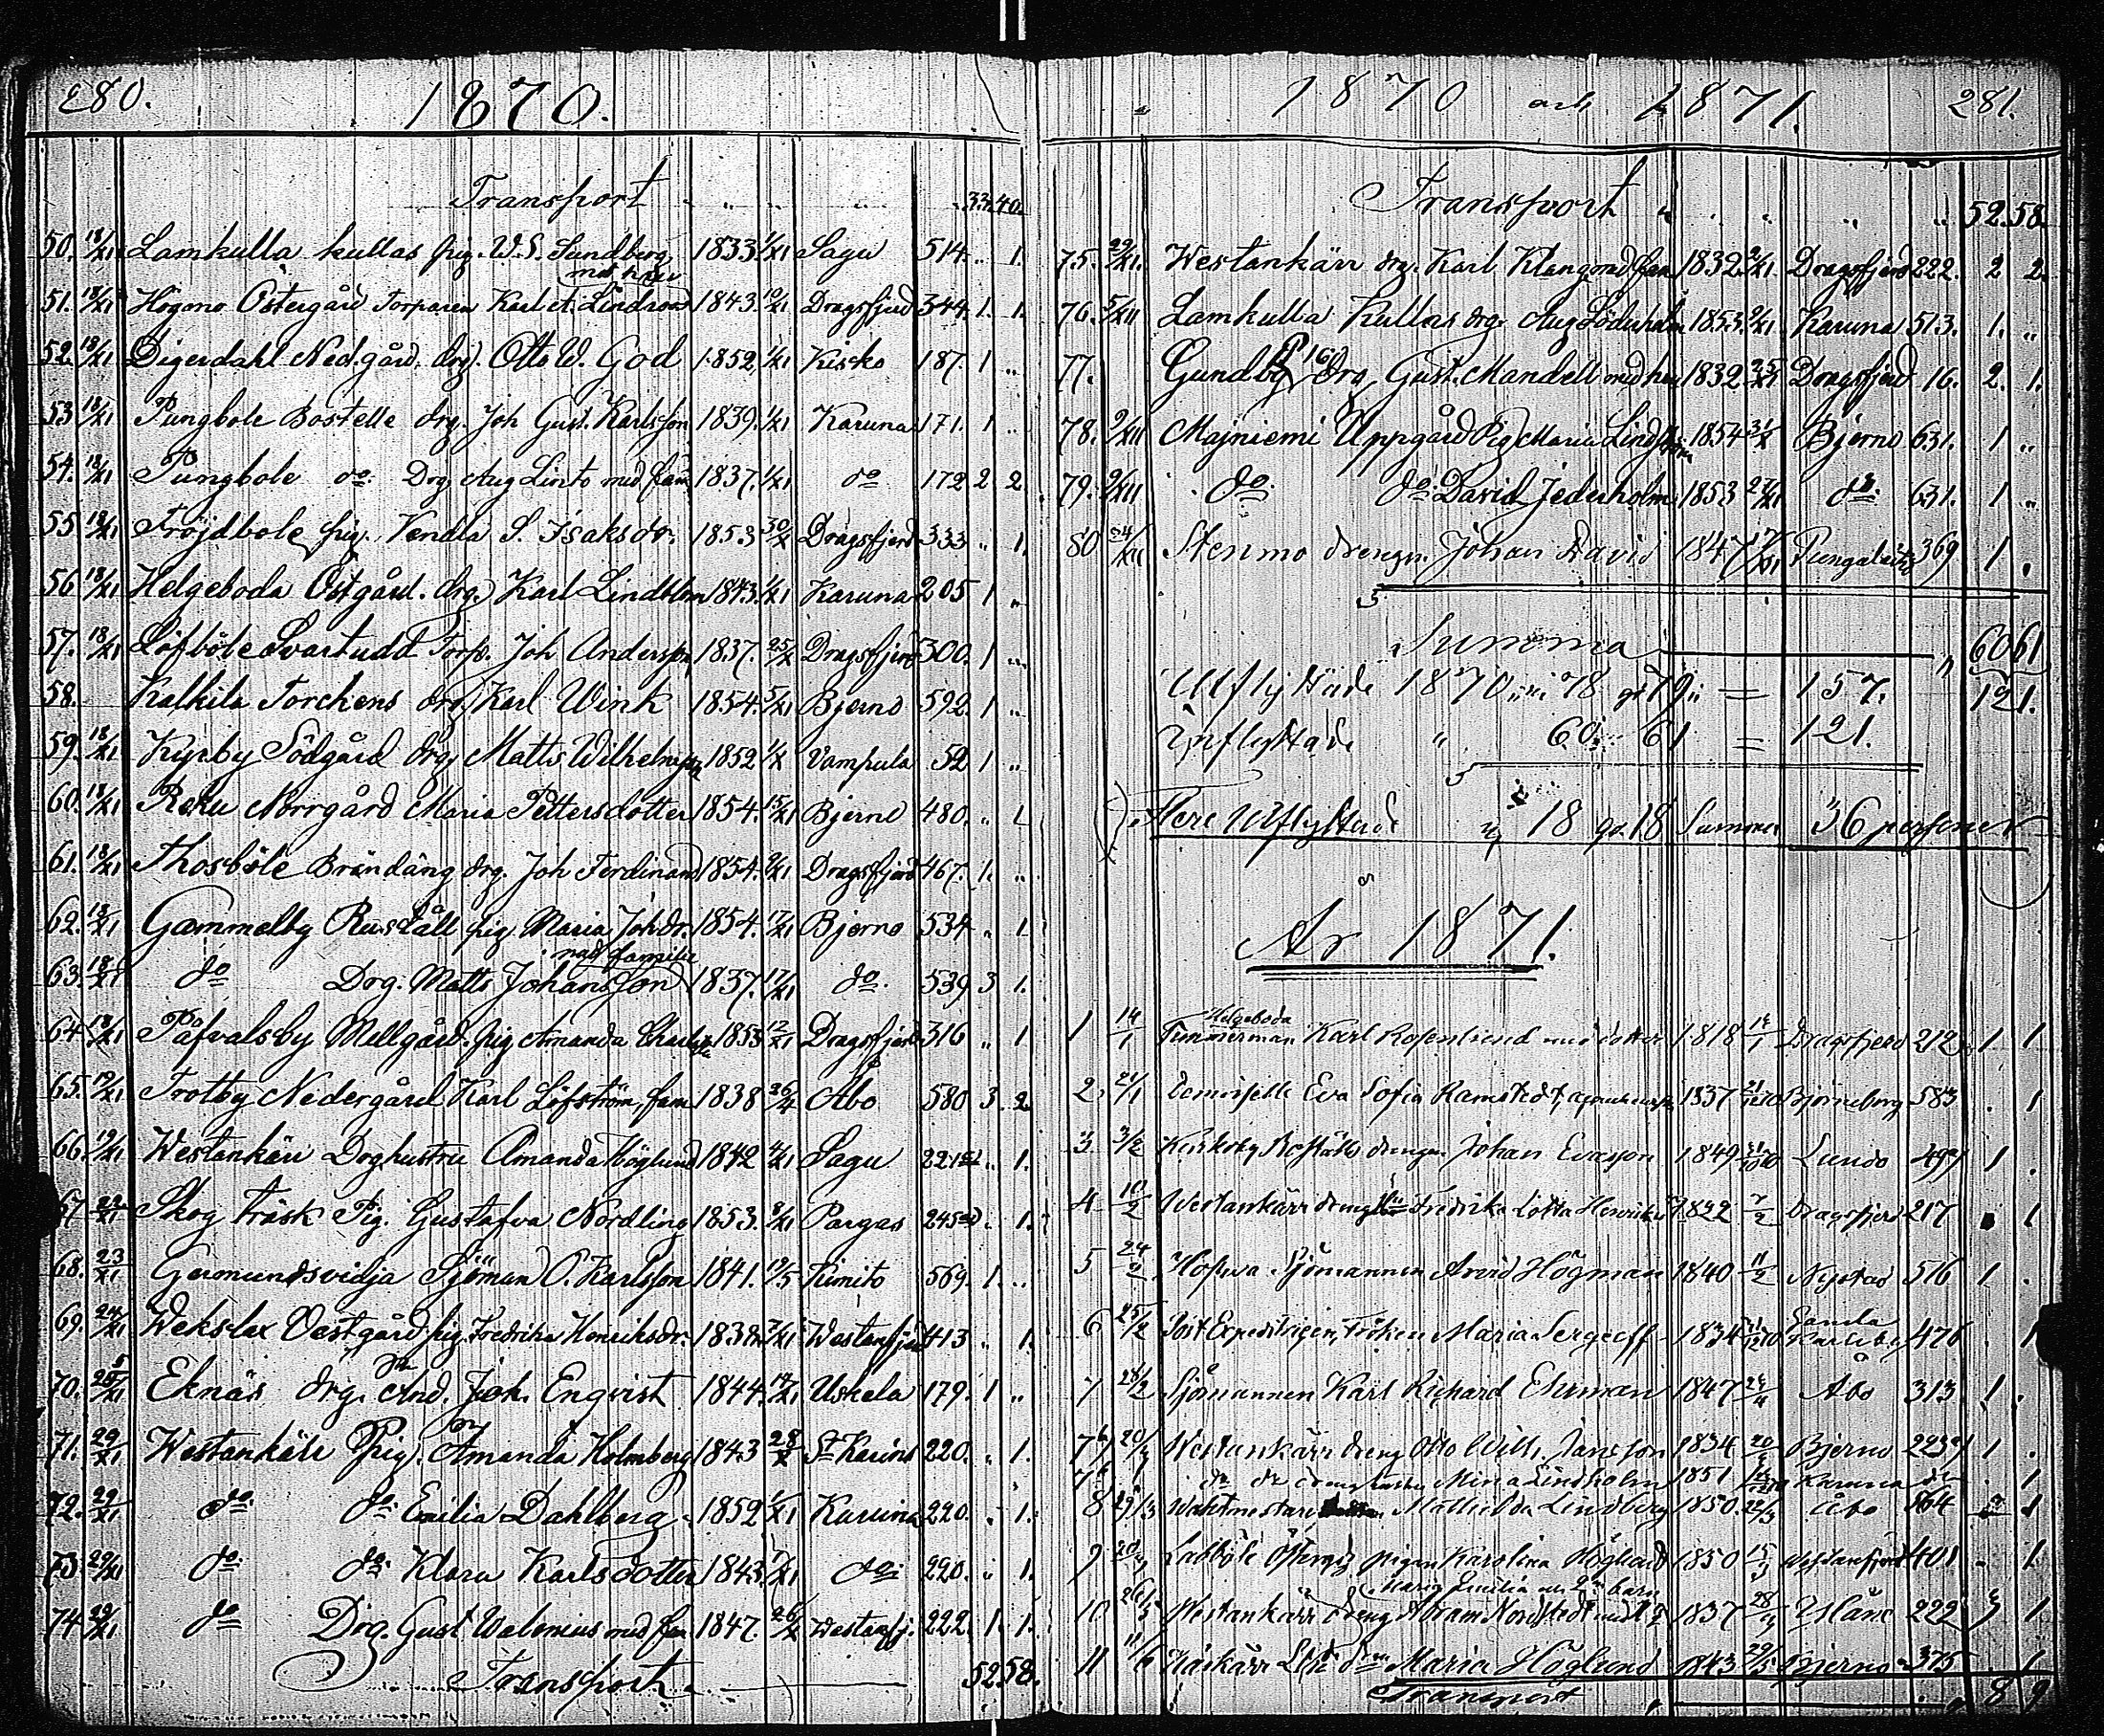 280. 1870.
Transport " " " " 33. 40.
50. 18/XI Lamkulla kullas pig. W. S. Sundberg 1833. 1/XI Sagu 514. " 1.
51. 18/XI Högmo Östergård Torparen Karl A. Lindroos med hust 1843. 10/XI Dragsfjerd 344. 1. 1.
52. 18/XI Digerdahl Ned.gård. drg. Otto W. God 1852. 1/XI Kisko 187. 1 "
53. 18/XI Pungbole Bostelle drg. Joh Gust. Karlsson 1839. 1/XI Karuna 171. 1 "
54. 18/XI Pungbole do. Drg. Aug Linto med fam 1837. 1/XI do 172 2 2.
55. 18/XI Fröjdbole pig. Vendla S. Isaksdr. 1853 30/X Dragsfjerd 333 " 1.
56. 18/XI Helgeboda Östgård. drg. Karl Lindblom 1843. 1/XI Karuna 205 1 "
57. 18/XI Löfböle Svartudd Torp. Joh Andersson 1837. 25/X Dragsfjerd 300. 1 "
58. Kalkila Torchens drg. Karl Wink 1854. 5/XI Bjerno 592. 1 "
59. 18/XI Kyrby Södgård drg. Matts Wilhelmsson 1852 1/X Vampula 52 1 "
60. 18/XI Reku Norrgård Maria Pettersdotter 1854. 15/XI Bjerno 480. " 1
61. 18/XI Thosböle Brändäng drg. Joh Ferdinand 1854. Dragsfjerd 467. 1. "
62. 18/XI Gammelby Rusthåll pig Maria Johdr. 1854. 17/XI Bjerno 534 " 1.
63. 18/XI do Drg. Matts Johansson med familie 1837. 17/XI do. 539 3 1.
64. 18/XI Påfvalsby Mellgård. pig Amanda 1853 12/XI Dragsfjerd 316 " 1
65. 19/XI Trotby Nedergård Karl Löfström, fam 1838 26/4 Åbo 580 3 2.
66. 19/XI Westankärr Drghustru Amanda Höglund 1842 4/XI Sagu 221 " 1.
67. 22/XI Skog träsk Pig. Gustafva Nordling 1853. 8/XI Pargas 245 " 1.
68. 23/XI Germundsvidja Sjöman O. Karlsson 1841. 19/5 Kimito 569. 1. "
69. 24/XI Wekslax Vestgård pig Fredrika Henriksdr. 1838 Westanfjerd 413 " 1.
70. 25/XI Eknäs drg. And. Joh. Enqvist 1844. 19/XI Uskela 179. 1 "
71. 29/XI Westankärr Pig. Amanda Holmberg 1843 28/X St Karins 220. " 1.
72. 29/XI do. do. Emilia Dahlberg 1852 1/XI Karuna 220. " 1.
73. 29/XI do. do. Klara Karlsdotter 1843. 1/XI do. 220. " 1.
74. 29/XI do Drg. Gust Walenius med fam 1847. 26/X Westanfj. 222. 1. 1.
Transport 52 58.
" 1870 och 1871. 281.
Transport " " " " 52. 58.
75. 29/XI. Westankärr drg. Karl Klang med fam 1832. 9/XI Dragsfjerd 222. 2 2.
76. 5/XII Lamkulla Kullas drg. Aug Söderholm 1853. 9/XI Karuna 513. 1. "
77. Gundby P 16 Drg Gust. Mandell med hu 1832. 25/XI Dragsfjerd 16. 2. 1.
78. 9/XII Majniemi Uppgård Pig Maria Lindström 1854 31/X Bjerno 631. 1 "
79. 9/XII do. do. David Jederholm 1853 27/XI do. 631. 1 "
80 24/XII Stenmo drengn. Johan David 1847 Pungalaitio 369 1 .
Summa " 60 61
121.
Utflyttade 1870 78 79 = 157.
Inflyttade " 60 61 = 121.
Flere Utflyttade 18 18 Summa 36 personer
År 1871.
1 14/1 Helgeboda Timmerman Karl Rosenlund med dotter 1818 14/1 Dragsfjerd 212 1 1
2. 21/1 Demoiselle Eva Sofia Ramstedt, 1837 Björneborg 583 . 1
3. 3/2 Rusthålls drengen Johan Evasson 1849 Lundo 497 1 .
4 10/2 Westankärr dreng Fredrika Lotta 1822 7/2 Dragsfjerd 217 . 1
5 24/2 Sjömannen Arvid Högman 1840 11/2 Nystad 516 1 .
6 25/2 Post Expeditrisen, Fröken Maria Sergeeff 1834 Gamla Karleby 476 . 1
7 28/2 Sjömannen Karl Richard Ekman 1847 Åbo 313 1 .
7 Westankärr dreng Otto Wilh. Jansson 1834 Bjerno 223 1 .
do do Mina Lindholm 1851 Karuna do . 1
8 Mathilda Lindberg 1850 22/3 Åbo 564 1
9 Labböle Östergd pigan Karolina Höglund 1850 15/3 Westanfjerd 401 . 1
10 Westankärr dreng Abram Nordstedt 1837 222 3 1
11 11/6 Maria Höglund 1843 29/5 Bjerno 375 1
Transport " 8 9